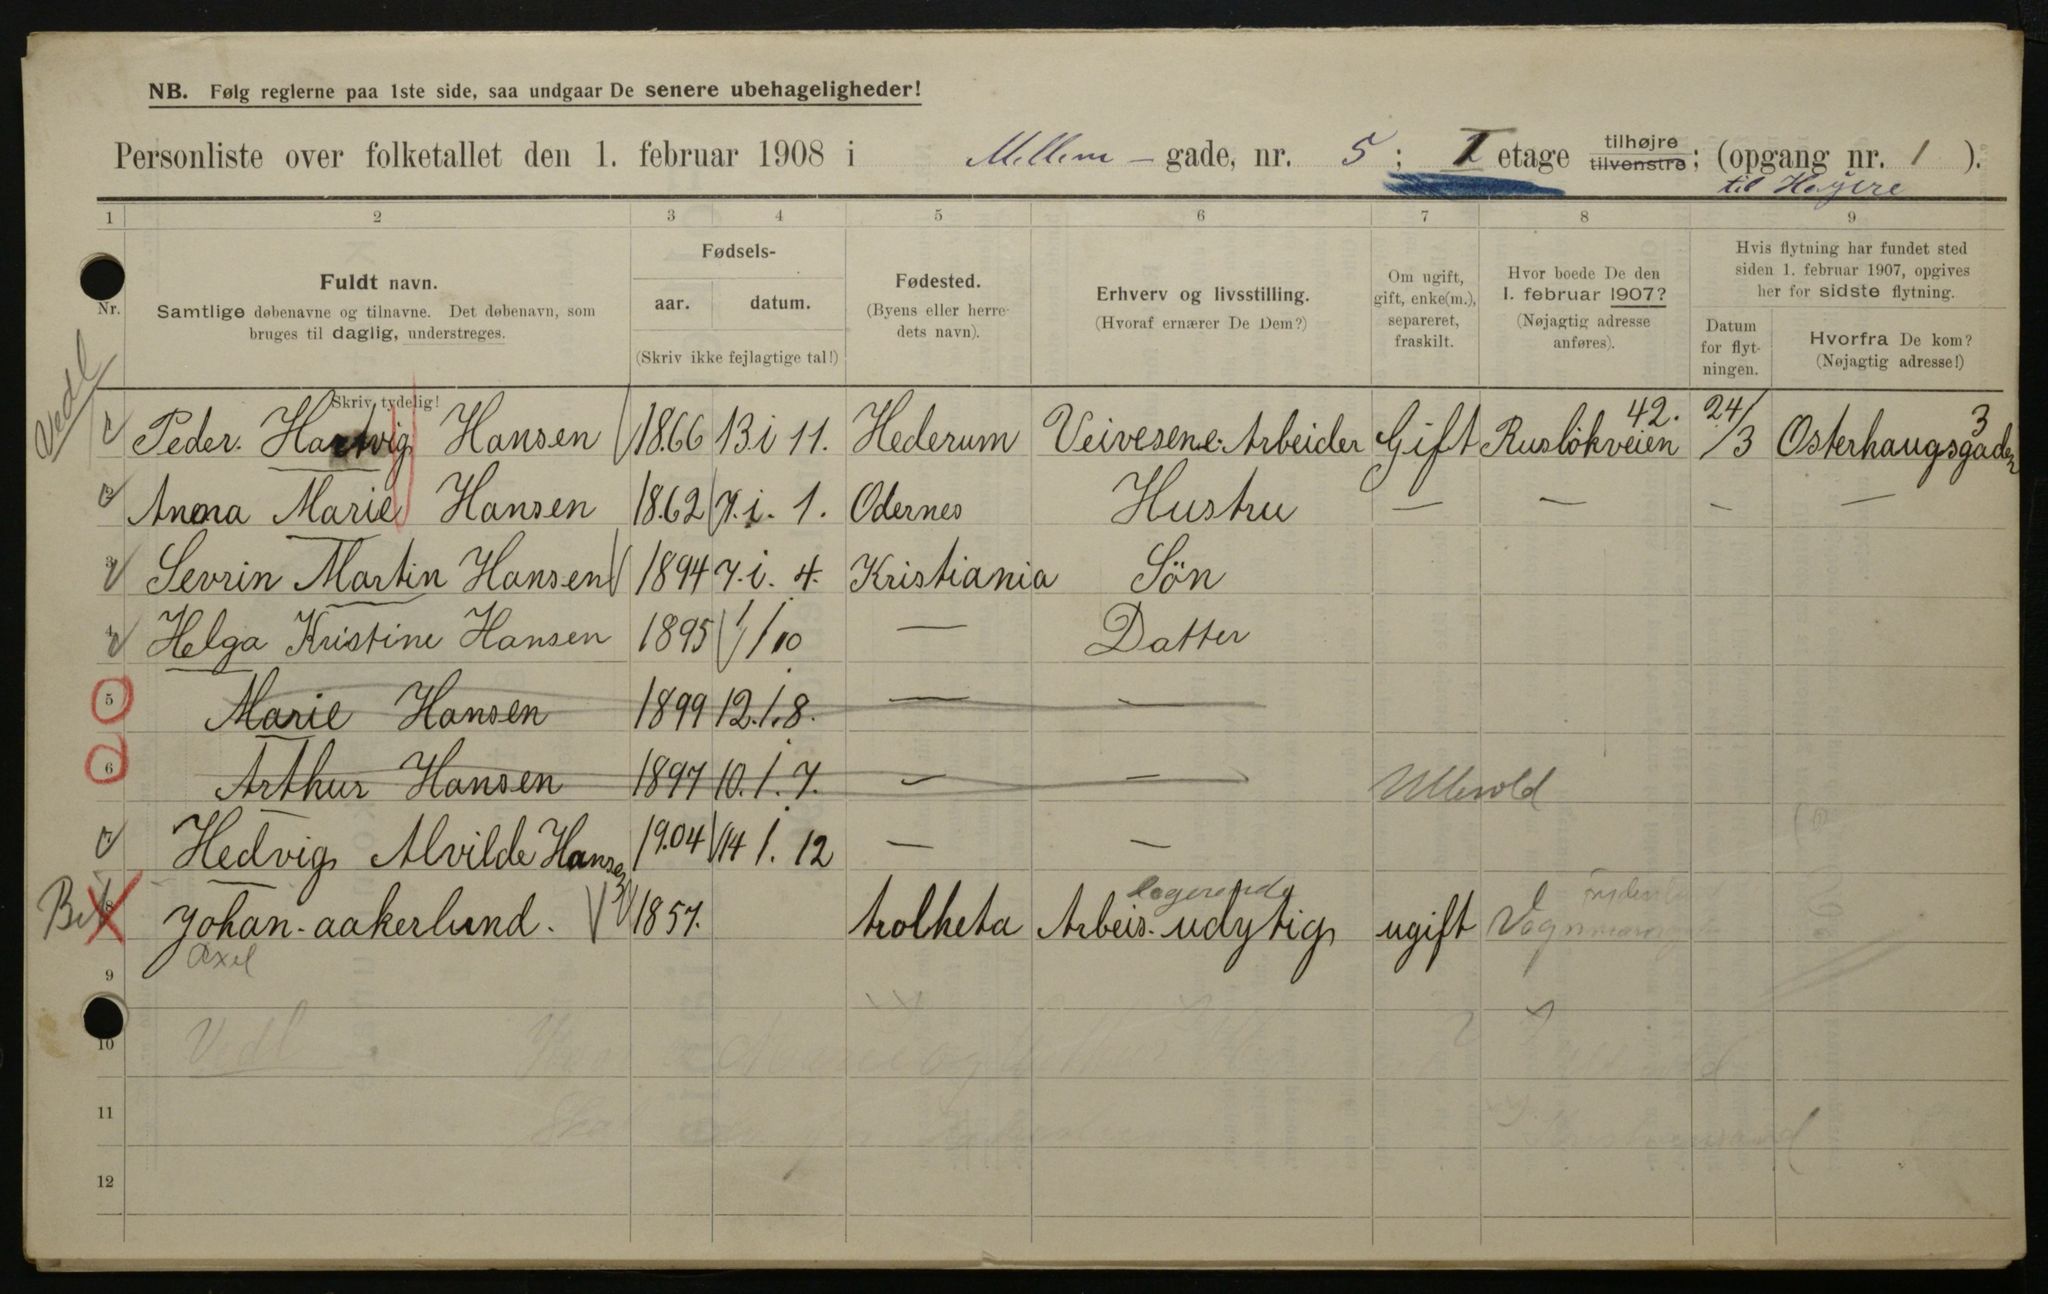 NB. Følg reglerne paa 1ste side, saa undgaar De senere ubehageligheder!
Personliste over folketallet den 1. februar 1908 i Mellem - gade, nr. 5 ; I etage tilhøjre tilvenstre ; (opgang nr. 1 ).
til Højere
1 2 3 4 5 6 7 8 9
Nr.
Fuldt navn.
Samtlige døbenavne og tilnavne. Det døbenavn, som
bruges til daglig, understreges.
Skriv tydelig!
Fødsels-
aar. datum.
(Skriv ikke fejlagtige tal!)
Fødested.
(Byens eller herre-
dets navn).
Erhverv og livsstilling.
(Hvoraf ernærer De Dem?)
Om ugift,
gift, enke(m.),
separeret,
fraskilt.
Hvor boede De den
1. februar 1907?
(Nøjagtig adresse
anføres).
Hvis flytning har fundet sted
siden 1. februar 1907, opgives
her for sidste flytning.
Datum
for flyt-
ningen.
Hvorfra De kom?
(Nøjagtig adresse!)
Vedl
1 Peder. Hartvig Hansen 1866 13 i 11. Hederum Veivesene. Arbeider Gift Rusløkveien 42. 24/3 Osterhaugsgaden 3
2 Anna Marie Hansen 1862 7. i. 1. Odernes Hustru — — — —
3 Sevrin Martin Hansen 1894 7. i. 4. Kristiania Sön
4 Helga Kristine Hansen 1895 1/10 — Datter
5 Marie Hansen 1899 12. /. 8. — —
6 Arthur Hansen 1897 10. /. 7. — —
Ullevold
7 Hedvig Alvilde Hansen 1904 14 /. 12 — —
8 Johan. aakerlund. 1857. trolheta Arbeis. udytig ugift
logerende
Axel
9
10 Vedl
11
12